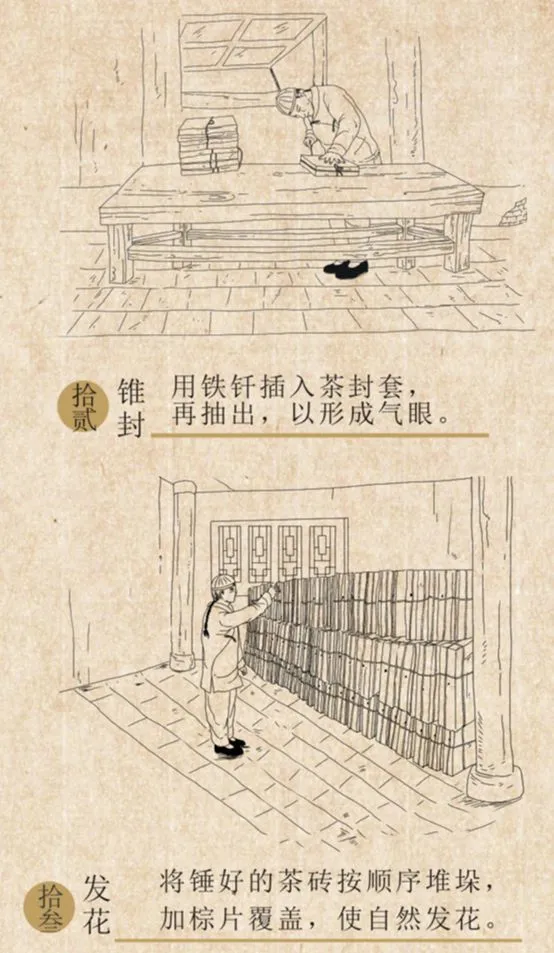 拾贰
锥封
用铁钎插入茶封套，
再抽出，以形成气眼。
拾叁
发花
将锤好的茶砖按顺序堆垛，
加棕片覆盖，使自然发花。